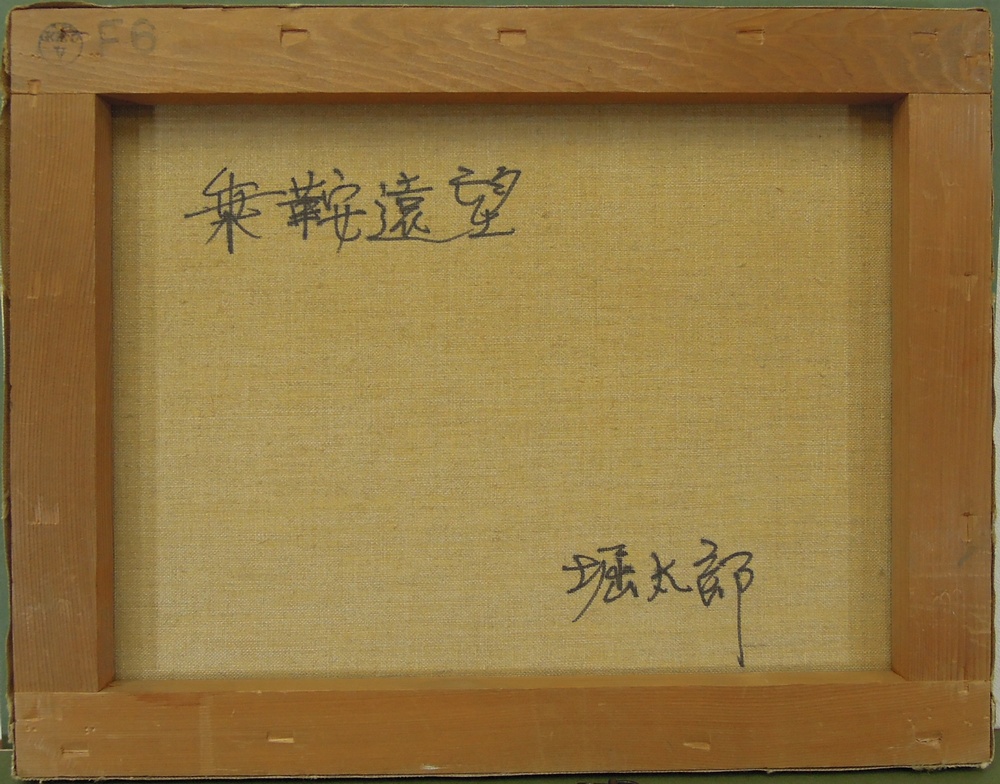 F6
乗鞍遠望
堀太郎